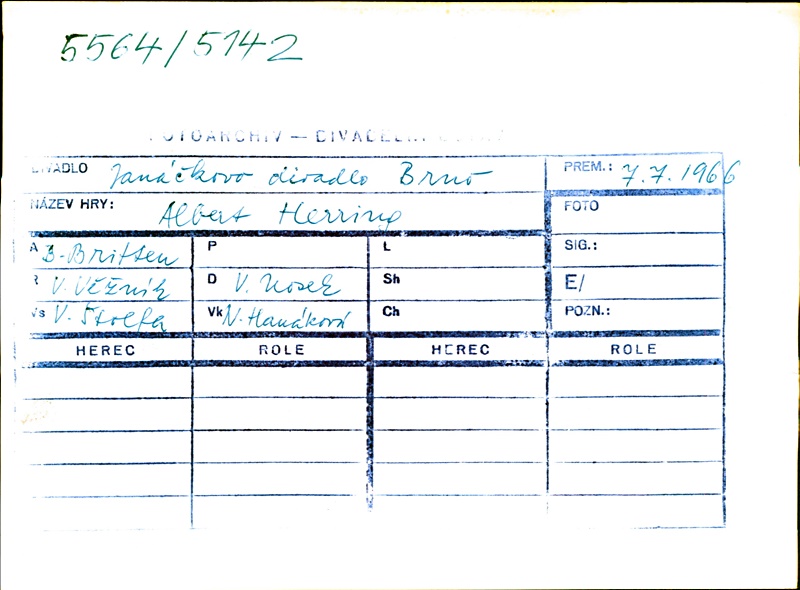 5564/5142
FOTOARCHIV — DIVADELNÍ
DIVADLO Janáčkovo divadlo Brno PREM.: 7.7.1966
NÁZEV HRY: Albert Herring FOTO
A B. Britten P L SIG.:
R V. Věžník D V. Nosek Sh E/
Vs V. Štolfa Vk N. Hanáková Ch POZN.:
HEREC ROLE HEREC ROLE